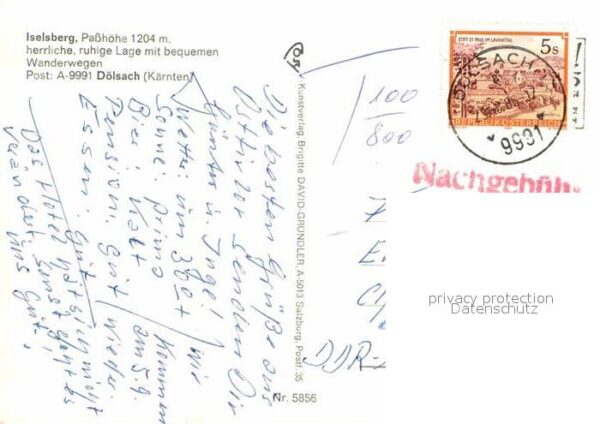 Iselsberg, Paßhöhe 1204 m,
herrliche, ruhige Lage mit bequemen
Wanderwegen
Post: A-9991 Dölsach (Kärnten)
Die besten Grüße aus
Osttirol senden Dir
Günter u. Inge!
Wetter: um 30°
Sonne: prima
Bier: kalt
Pension: gut
Essen: gut
Wir
kommen
am 5.9.
wieder.
Das Hotel hat sich nicht
verändert. Sonst geht es
uns gut!
Kunstverlag Brigitte DAVID-GRÜNDLER, A-5013 Salzburg, Postf. 35
Nr. 5856
100
800
STIFT ST. PAUL IM LAVANTTAL
5s
REPUBLIK ÖSTERREICH
DÖLSACH
9991
Nachgebühr
DDR-
privacy protection
Datenschutz